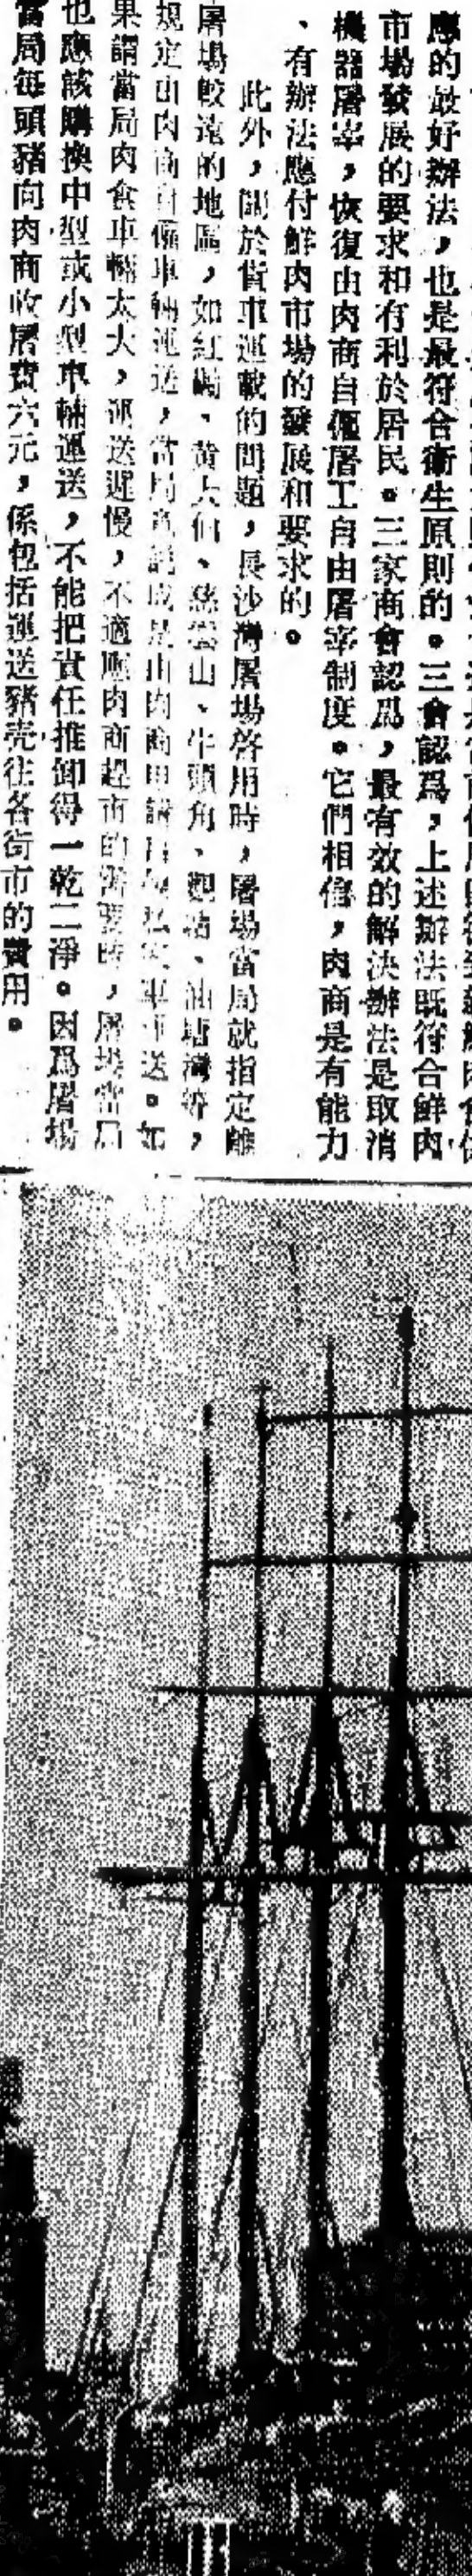 應的最好辦法，也是最符合衞生原則的。三會認爲，上述辦法既符合鮮肉
市場發展的要求和有利於居民。三家商會認爲，最有效的解決辦法是取消
機器屠宰，恢復由肉商自僱屠工自由屠宰制度。它們相信，肉商是有能力
、有辦法應付鮮肉市場的發展和要求的。
此外，關於街車運載的問題，長沙灣屠場啓用時，屠場當局就指定離
屠場較遠的地區，如紅磡、黃大仙、慈雲山、牛頭角、觀塘、油塘灣等，
規定由肉商自備車輛運送，當局竟說成是由肉商申請 車運送。如
果謂當局肉食車輛太大，運送遲慢，不適應肉商趕市的需要時，屠場當局
也應該購換中型或小型車輛運送，不能把責任推卸得一乾二淨。因爲屠場
當局每頭豬向肉商收屠費六元，係包括運送豬壳往各街市的費用。